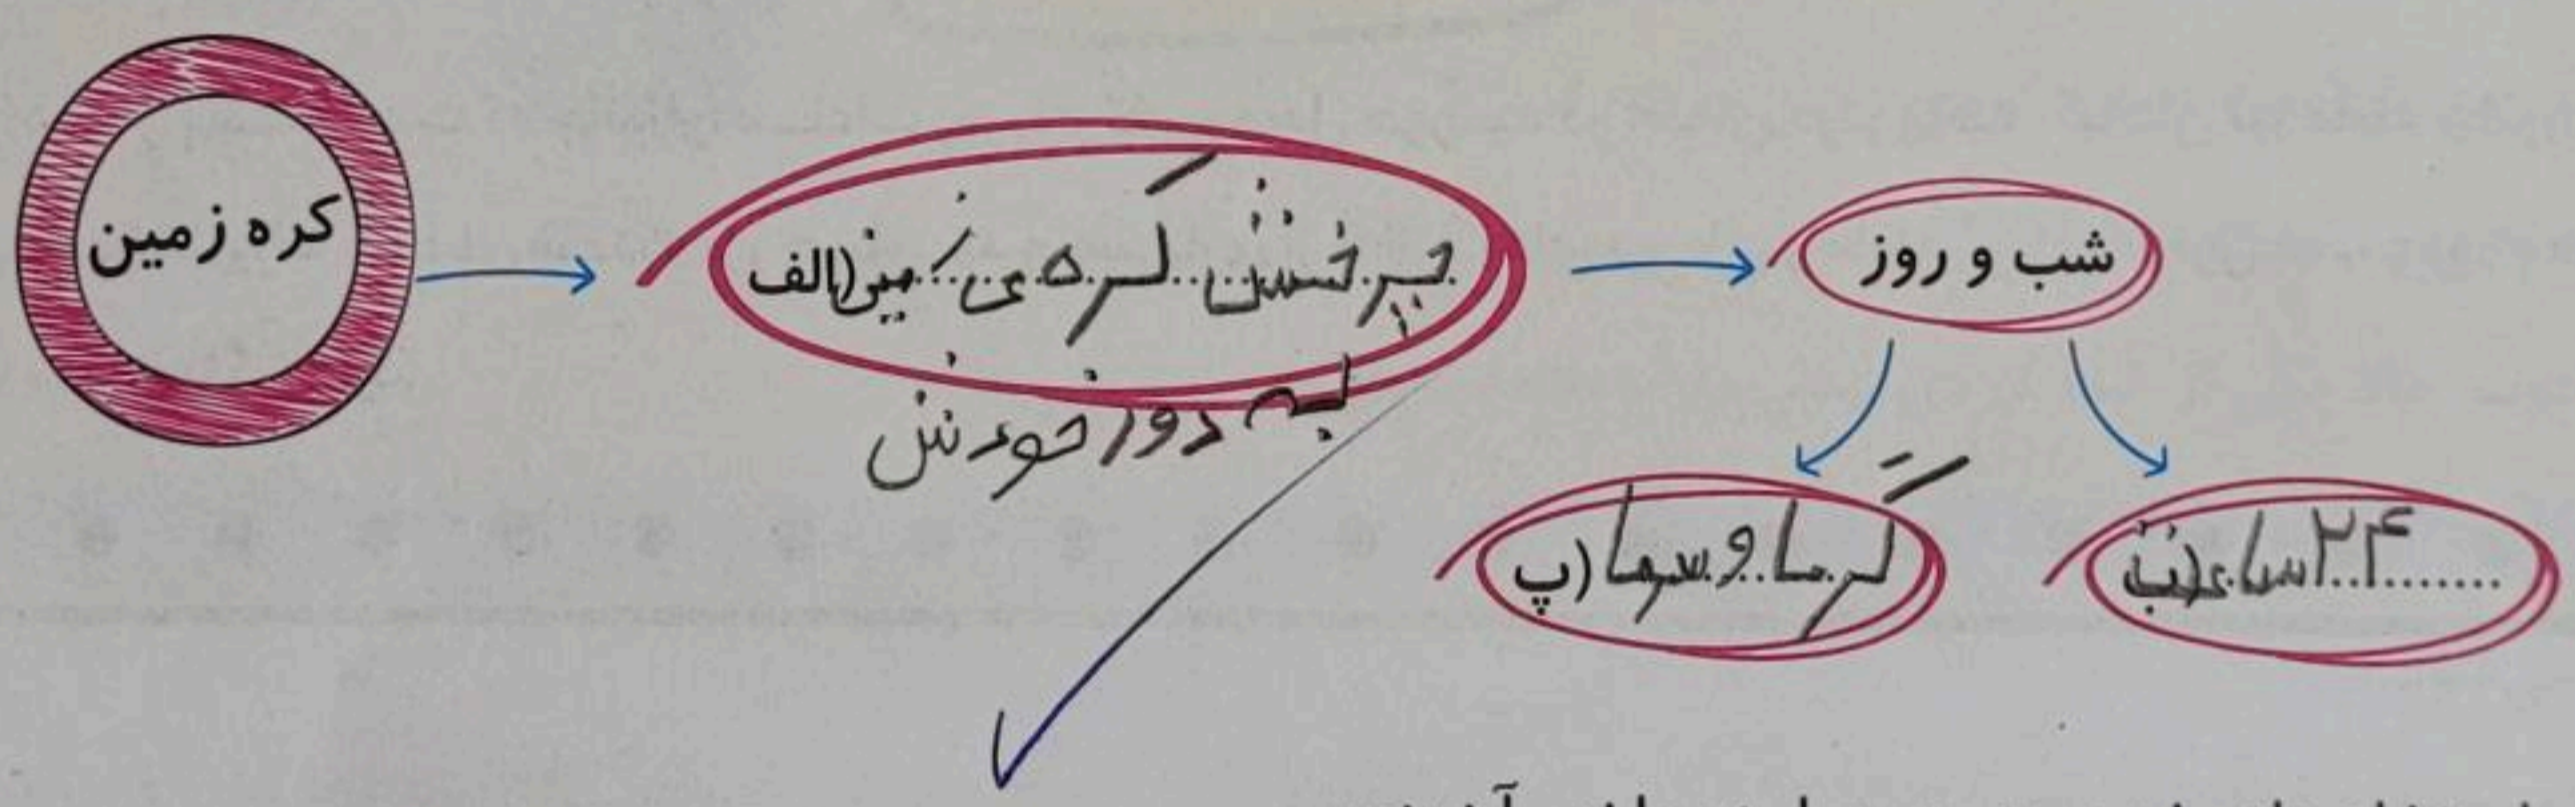 کره زمین
چرخش کره ی زمین (الف
به دور خودش
شب و روز
گرما و سرما (پ
۲۴ ساعت (ب